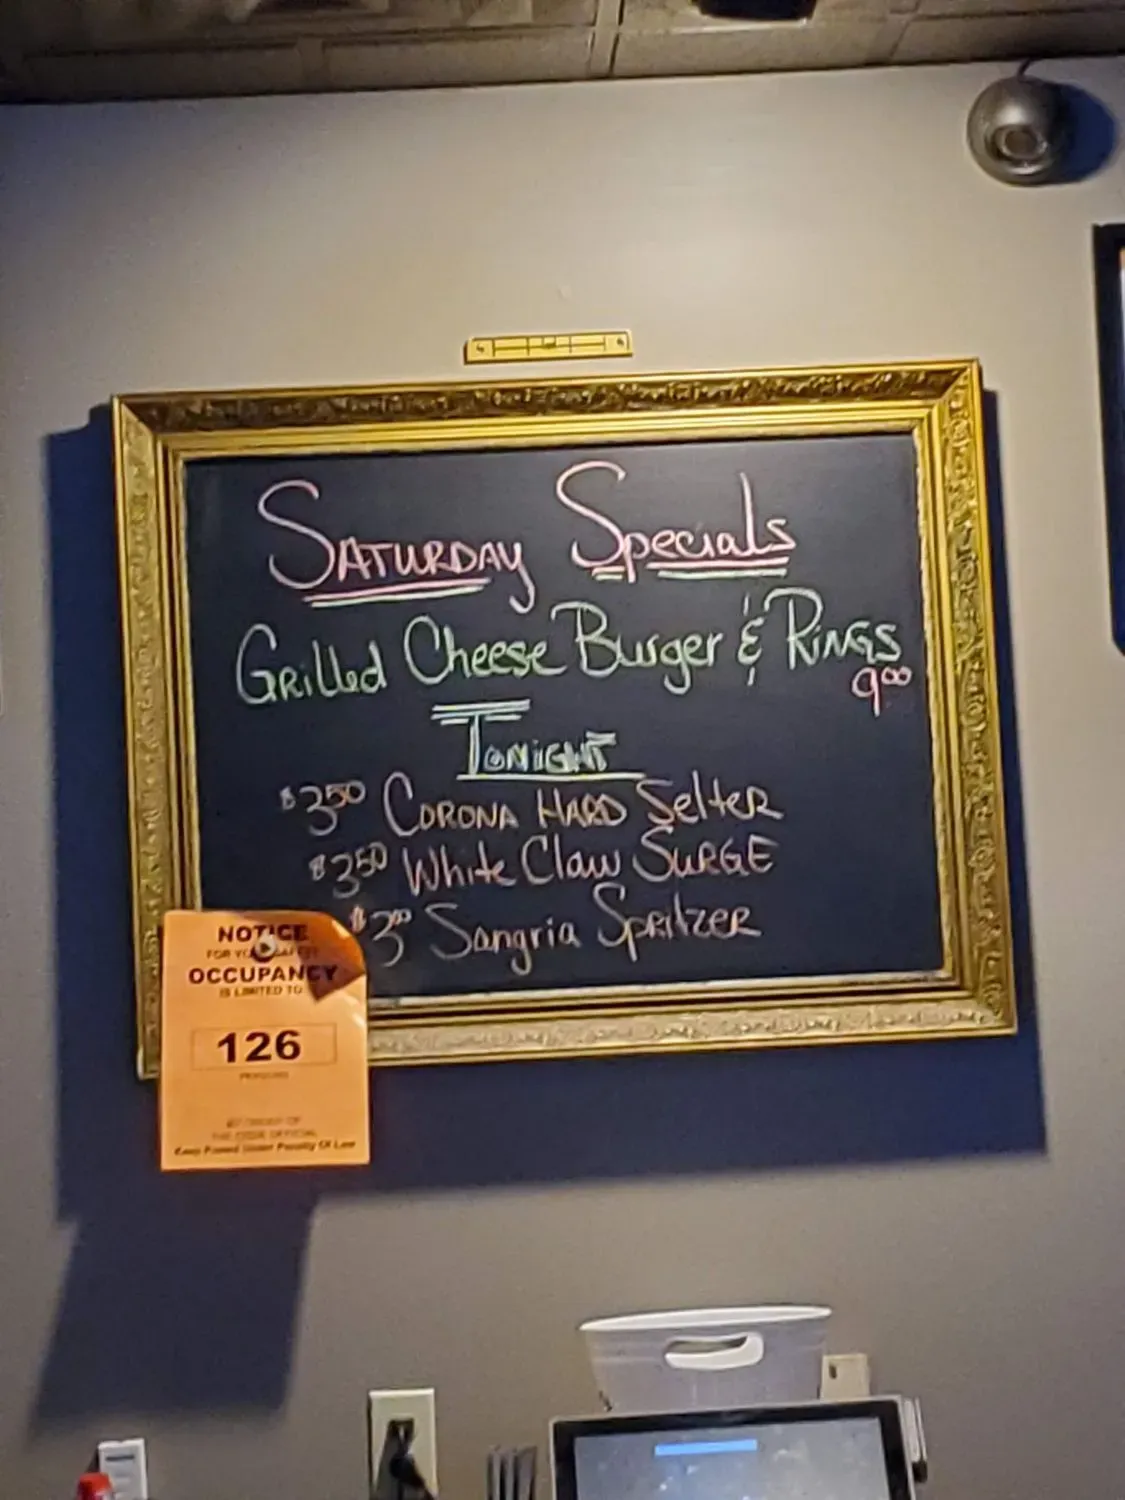 SATURDAY Specials
GRilled Cheese Burger & RINGS
9.00
TONIGHT
$3.50 CORONA HARD SelteR
$3.50 White Claw SURGE
$3.00 Sangria SpRitzeR
NOTICE
FOR YOUR SAFETY
OCCUPANCY
IS LIMITED TO
126
PERSONS
BY ORDER OF
THE CODE OFFICIAL
Keep Posted Under Penalty Of Law